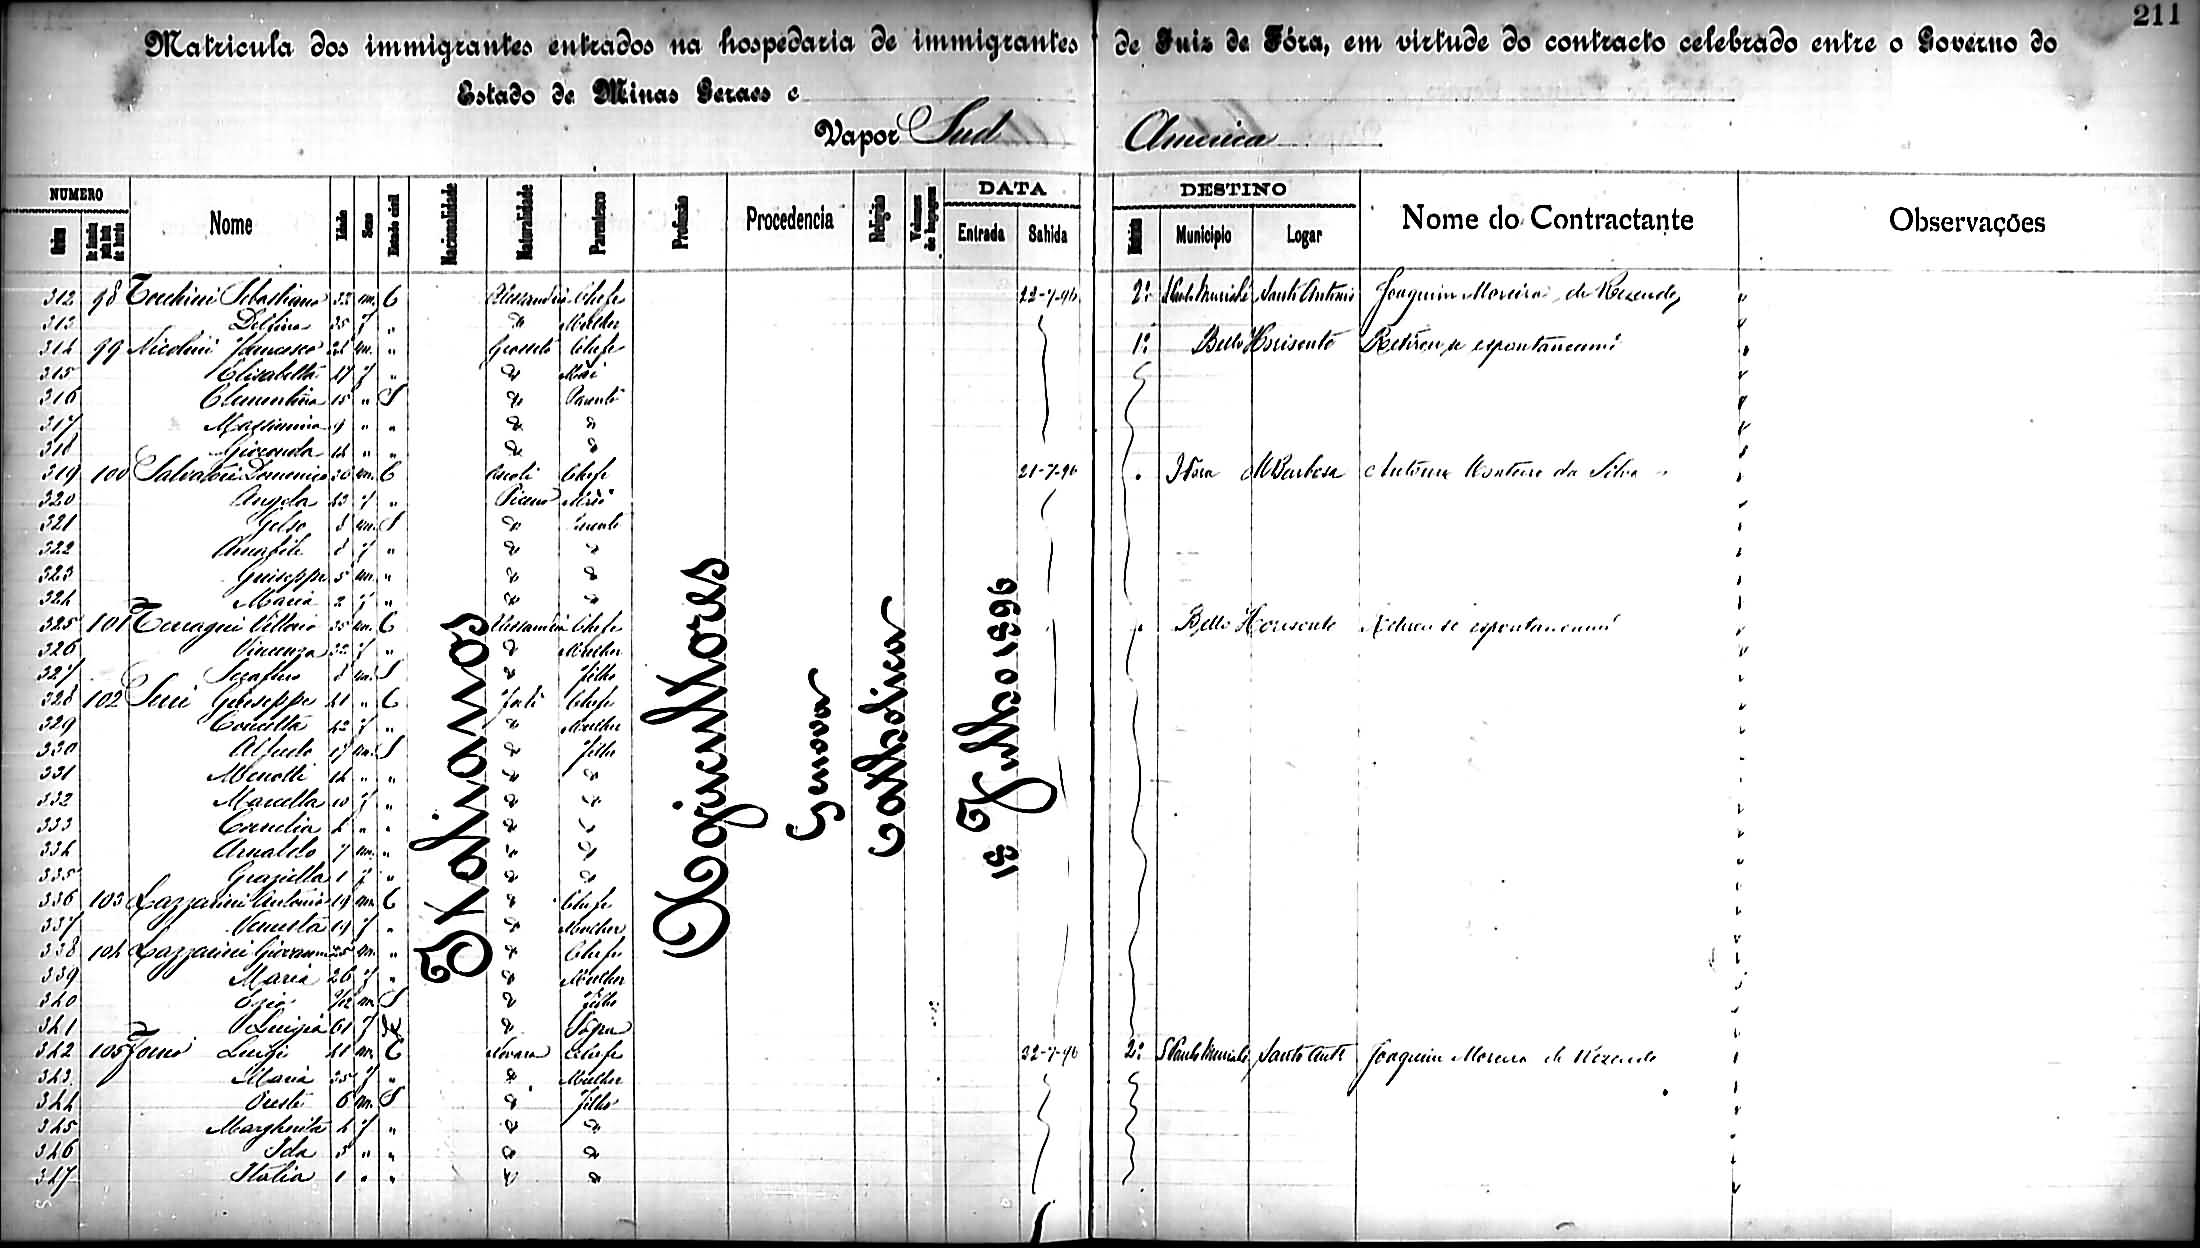 211
Matricula dos immigrantes entrados na hospedaria de immigrantes de Juiz de Fóra, em virtude do contracto celebrado entre o Governo do
Estado de Minas Geraes e
Vapor Sud America
NUMERO DATA DESTINO
Ordem Nome Idade Sexo Estado civil Nacionalidade Naturalidade Parentesco Profissão Procedencia Religião Volumes de bagagem Entrada Sahida Municipio Logar Nome do Contractante Observações
Italianos
Agricultores
Genova
Catholica
18 Julho 1896
312 98 Tocchini Sebastiano 32 m. C Alessandria Chefe 22-7-96 2ª S Paulo Muriahé Santo Antonio Joaquim Moreira de Rezende "
313 Delfina 35 f " " Mulher "
314 99 Nicolini Francesco m. " Grosseto Chefe 1ª Bello Horisonte Retirou se espontaneamte "
315 Elisabetta f " " Mai "
316 Clementina 15 " S " Parente "
317 Massimina 9 " " " " "
318 Gioconda " " " " "
319 100 Salvatori Domenico 30 m. C Ascoli Chefe 21-7-96 " J Fora M Barbosa Antonio Monteiro da Silva "
320 Angela f " Piceno "
321 Gelso 8 m. S " Parente "
322 Amabile 8 f " " " "
323 Guiseppe 5 m. " " " "
324 Maria 2 f " " " "
325 101 Vittorio 35 m. C Alessandria Chefe " Bello Horisonte Retirou se espontaneamte "
326 Vincenza 32 f " " Mulher "
327 Serafino 8 m. S " Filho "
328 102 Guiseppe 41 " C Forli Chefe "
329 Concetta 42 f " " Mulher "
330 Alfredo 17 m. S " Filho "
331 Menotti 14 " " " "
332 Marcella 10 f " " "
333 Cornelia 4 " " " "
334 Arnaldo 7 m. " " "
335 Graziella 1 f " " "
336 103 Lazzarini Antonio 19 m. C " Chefe "
337 Venusta 19 f " " Mulher "
338 104 Lazzarini Giovanni 25 m. " " Chefe "
339 Maria 26 f " " Mulher "
340 Ezio m. S " Filho "
341 Luigia 61 f " Sogra "
342 105 Luigi 41 m. C Novara Chefe 22-7-96 2ª S Paulo Muriahé Santo Antº Joaquim Moreira de Rezende "
343 Maria 35 f " " Mulher "
344 Oreste 6 m. S " Filho "
345 Margherita 4 f " " " "
346 Ida 3 " " " " "
347 Italia 1 " " " " "